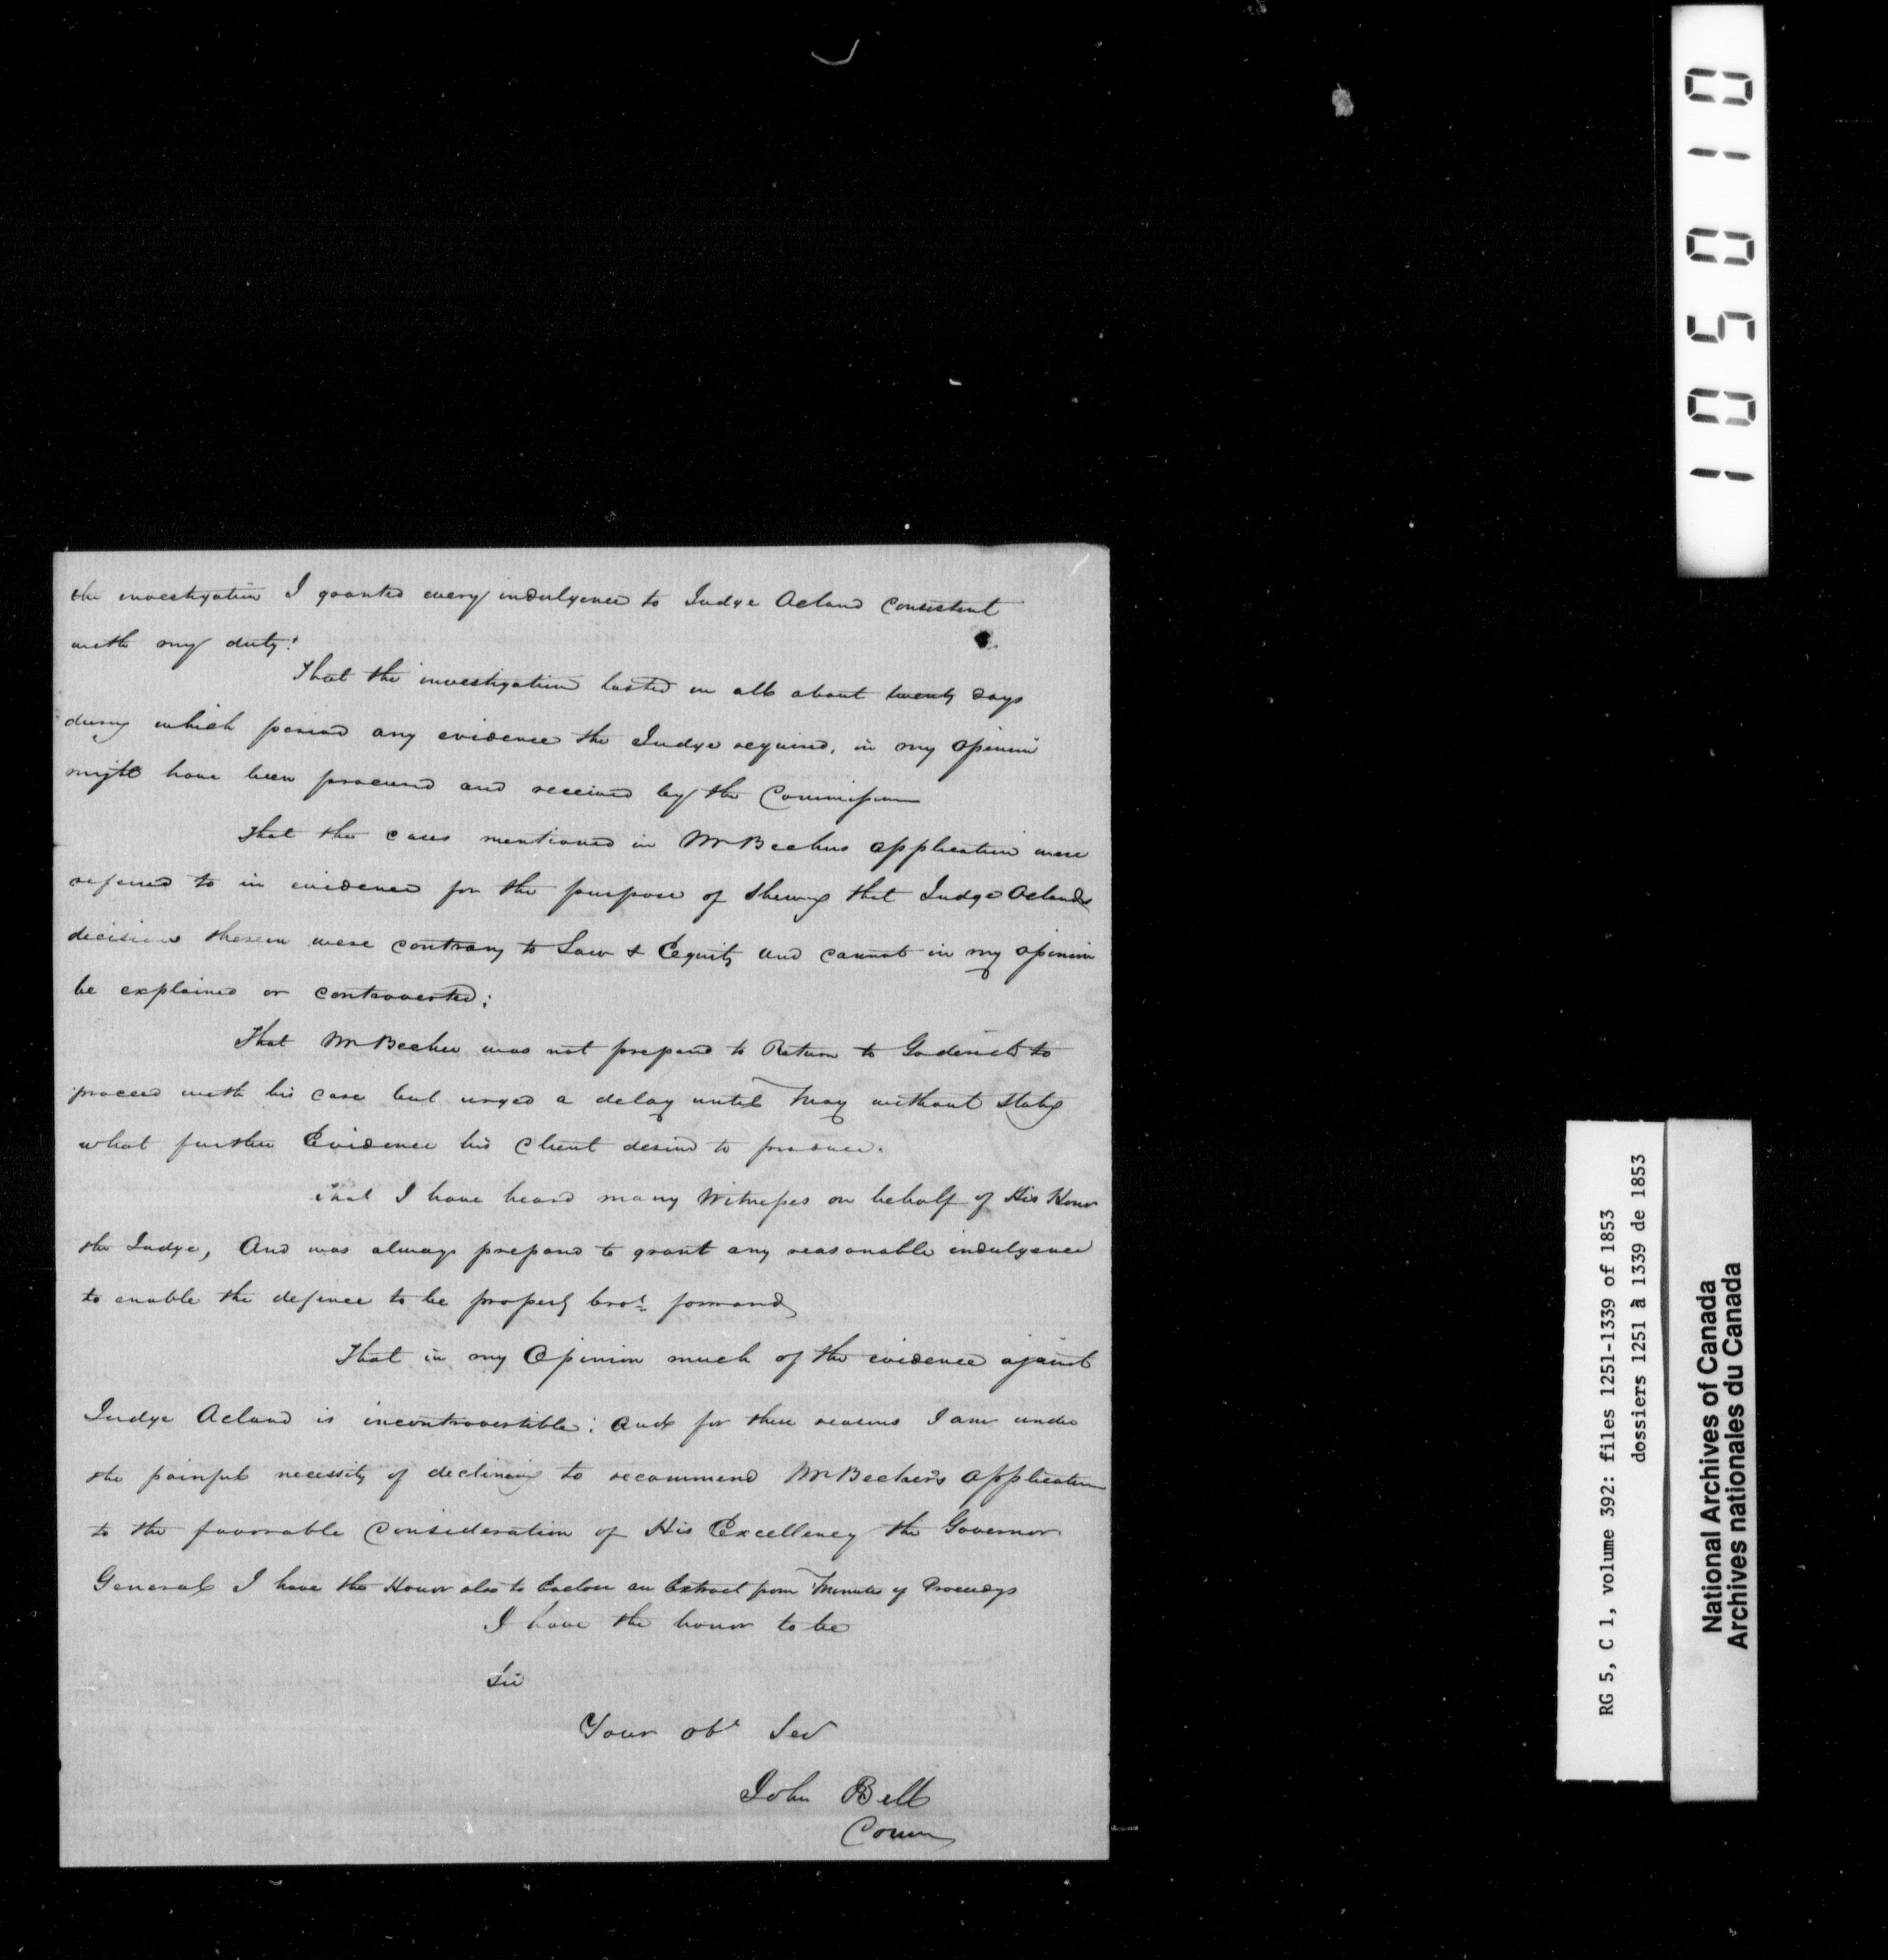 the investigation I granted every indulgence to Judge Acland consistent
with my duty:
That the investigation lasted in all about twenty days
during which period any evidence the Judge required, in my opinion
might have been procured and received by the Commission
That the cases mentioned in Mr Bechers application were
referred to in evidence for the purpose of shewing that Judge Aclands
decisions therein were contrary to Law & Equity and cannot in my opinion
be explained or controverted;
That Mr Becher was not prepared to Return to Goderich to
proceed with his case but urged a delay until May without stating
what further Evidence his Client desired to produce.
That I have heard many Witnesses on behalf of His Honor
the Judge, And was always prepared to grant any reasonable indulgence
to enable the defence to be properly brot. forward
That in my Opinion much of the evidence against
Judge Acland is incontrovertible: And for these reasons I am under
the painful necessity of declining to recommend Mr Becher's Application
to the favorable Consideration of His Excellency the Governor
General I have the Honor also to Enclose an Extract from Minutes of Proceedings
I have the honor to be
Sir
Your obt Ser
John Bell
Comm
105010
RG 5, C 1, volume 392: files 1251-1339 of 1853
dossiers 1251 à 1339 de 1853
National Archives of Canada
Archives nationales du Canada